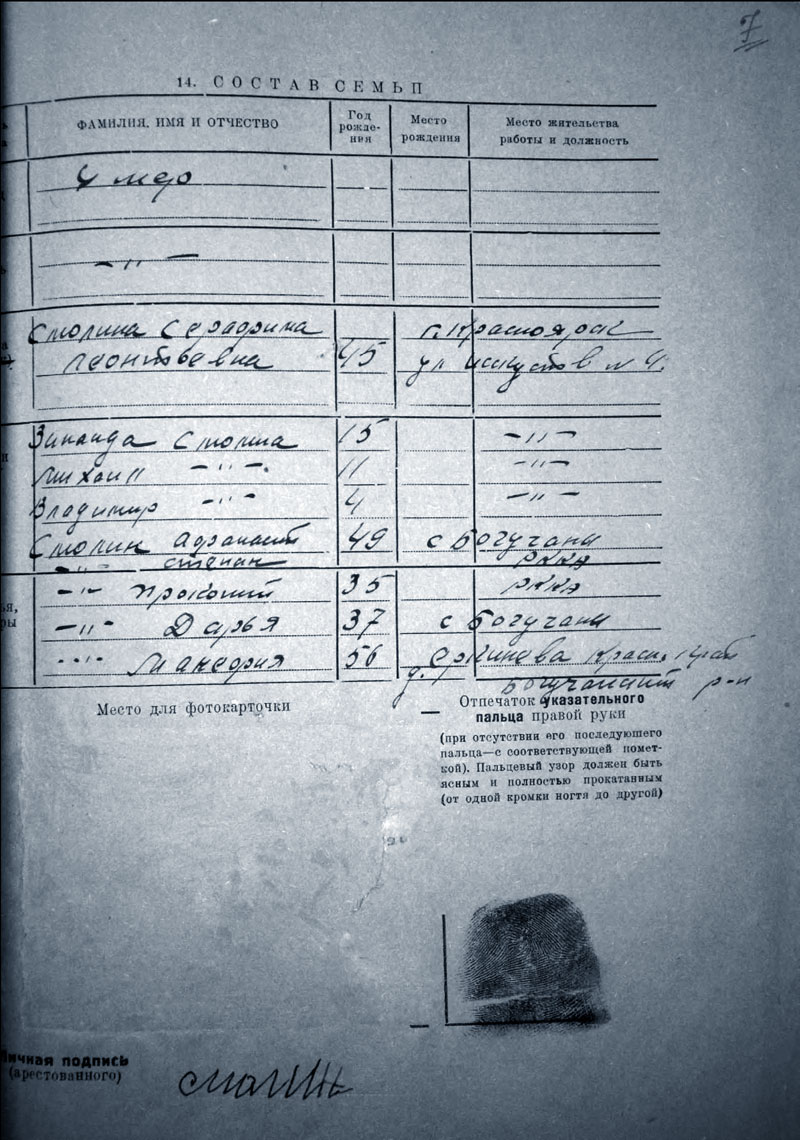 7
14. СОСТАВ СЕМЬИ
ФАМИЛИЯ, ИМЯ И ОТЧЕСТВО
Год рожде-ния
Место рождения
Место жительства работы и должность
Умер
— " —
Смолина Серафима г. Красноярск
Леонтьевна 45 ул Исскуств № 4.
Зинаида Смолина 15 — " —
Михаил — " — 11 — " —
Владимир — " — 4 — " —
Смолин Афанасий 49 с Богучаны
— " — степан РККА
— " — Прокопий 35 РККА
— " — Дарья 37 с Богучаны
— " — 56 д. Красн. край
Богучанский р-н
Место для фотокарточки
Отпечаток указательного
пальца правой руки
(при отсутствии его последующего
пальца—с соответствующей помет-
кой). Пальцевый узор должен быть
ясным и полностью прокатанным
(от одной кромки ногтя до другой)
ичная подпись
(арестованного)
смолин